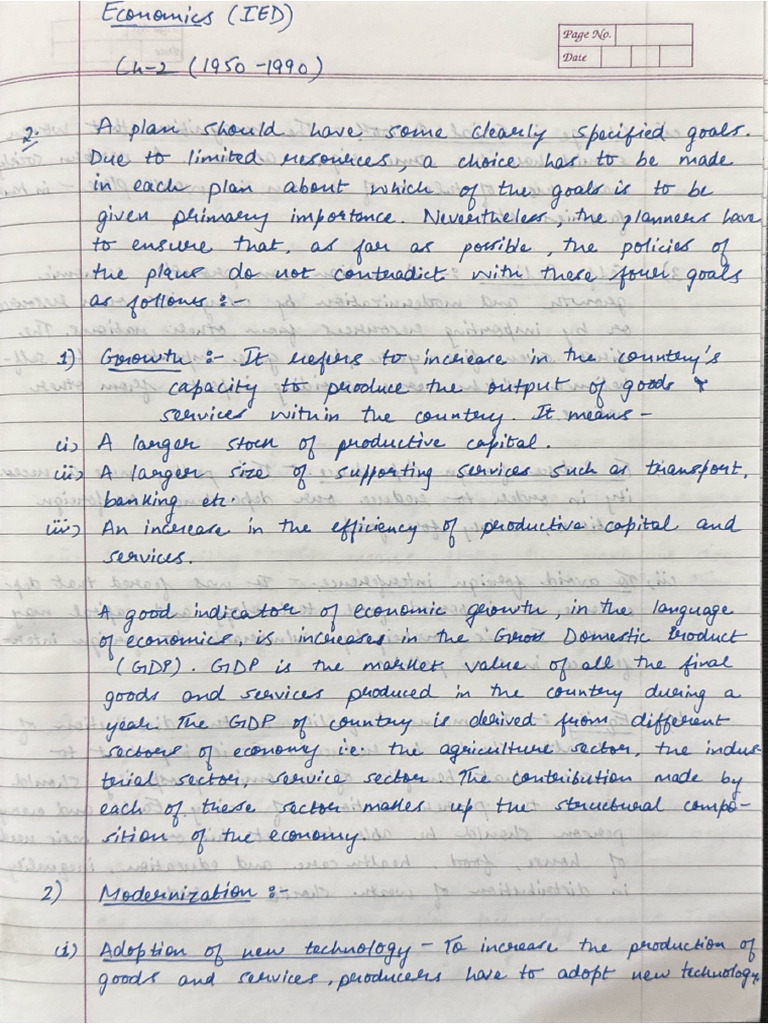 Economics (IED)
Page No.
Ch-2 (1950-1990)
Date
2. A plan should have some clearly specified goals.
Due to limited resources, a choice has to be made
in each plan about which of the goals is to be
given primary importance. Nevertheless, the planners have
to ensure that, as far as possible, the policies of
the plans do not contradict with these four goals
as follows :-
1) Growth :- It refers to increase in the country's
capacity to produce the output of goods &
services within the country. It means -
(i) A larger stock of productive capital.
(ii) A larger size of supporting services such as transport,
banking etc.
(iii) An increase in the efficiency of productive capital and
services.
A good indicator of economic growth, in the language
of economics, is increases in the Gross Domestic Product
(GDP). GDP is the market value of all the final
goods and services produced in the country during a
year. The GDP of country is derived from different
sectors of economy i.e. the agriculture sector, the indus-
trial sector, service sector. The contribution made by
each of these sector makes up the structural compo-
sition of the economy.
2) Modernization :-
(i) Adoption of new technology - To increase the production of
goods and services, producers have to adopt new technology.